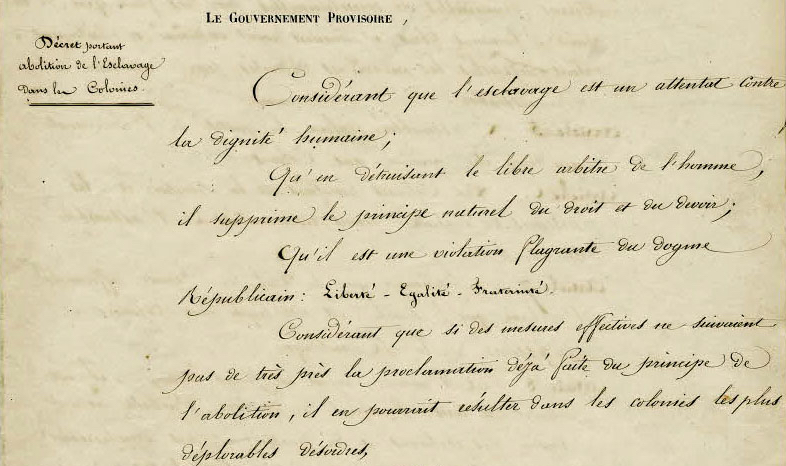 LE GOUVERNEMENT PROVISOIRE,
Décret portant
abolition de l'Esclavage
dans les Colonies.
Considérant que l'esclavage est un attentat contre
la dignité humaine;
Qu'en détruisant le libre arbitre de l'homme,
il supprime le principe naturel du droit et du devoir;
Qu'il est une violation flagrante du dogme
Républicain: Liberté - Egalité - Fraternité.
Considérant que si des mesures effectives ne suivaient
pas de très près la proclamation déjà faite du principe de
l'abolition, il en pourrait résulter dans les colonies les plus
déplorables désordres,